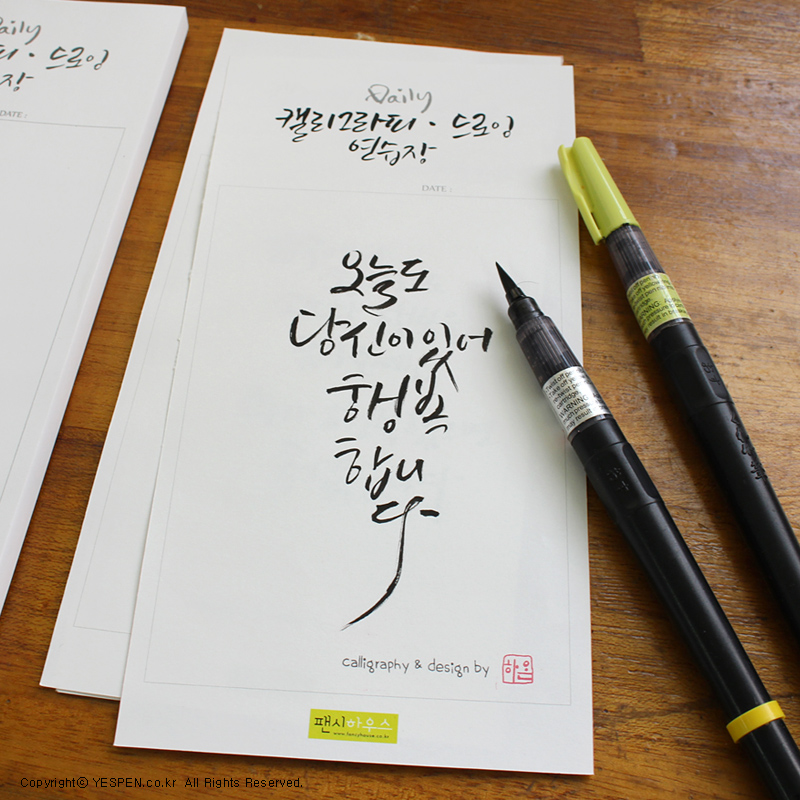 Daily
피·드로잉
장
DATE :
Daily
캘리그라피·드로잉
연습장
DATE :
오늘도
당신이있어
행복
합니
다
calligraphy & design by
하은
팬시하우스
www.fancyhouse.co.kr
Copyrightⓒ YESPEN.co.kr All Rights Reserved.